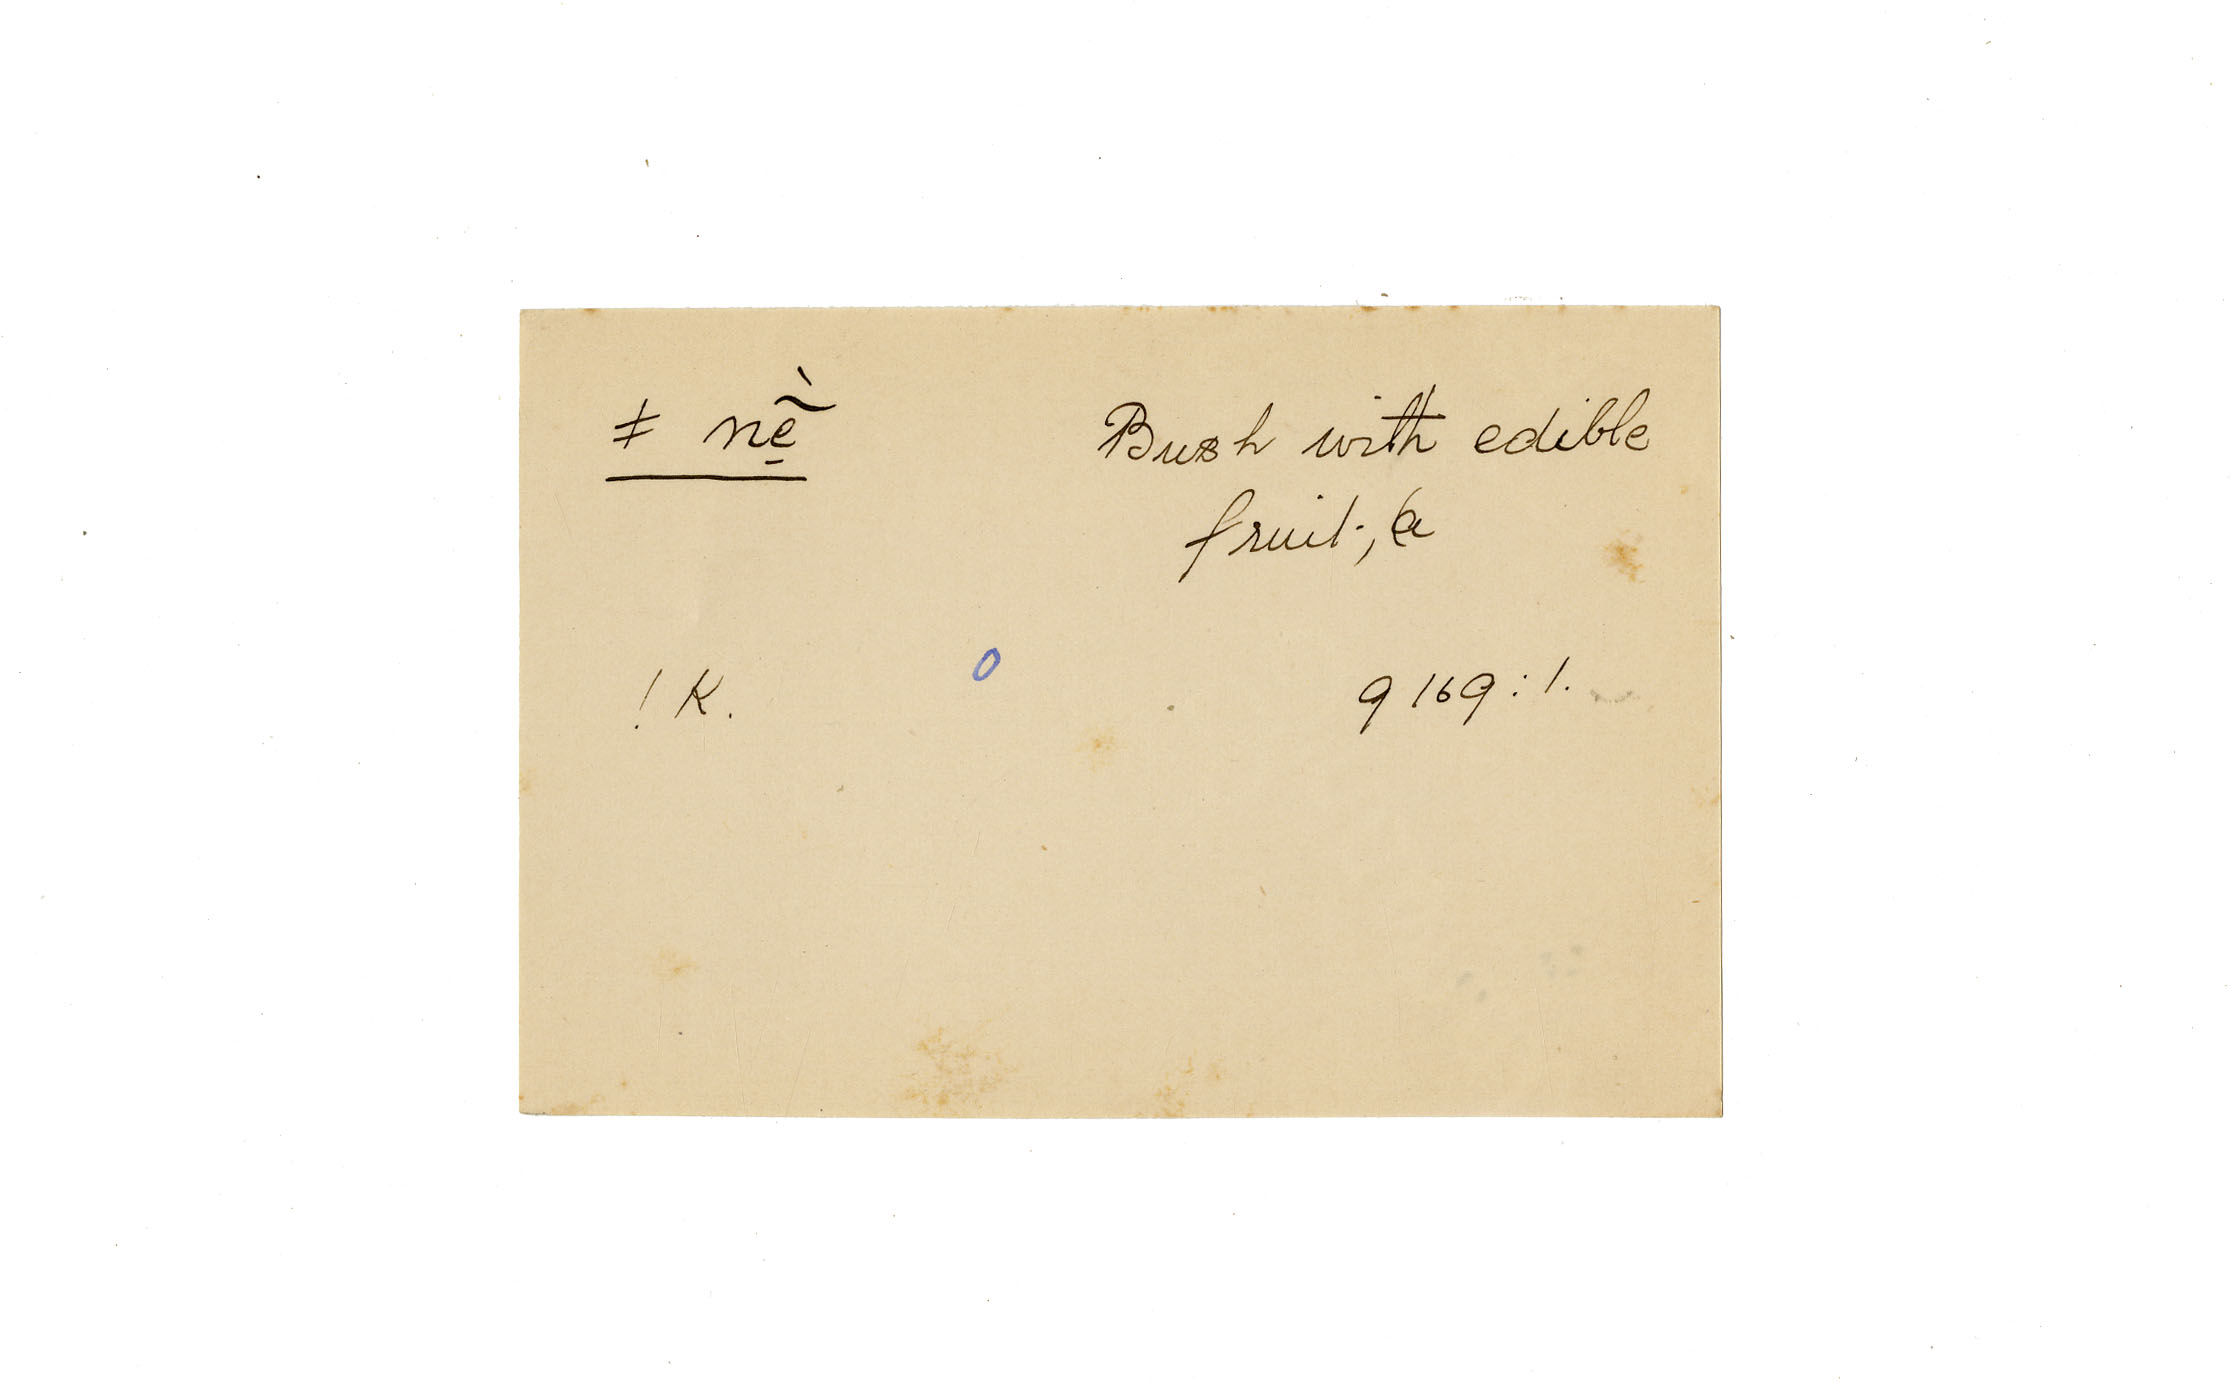 ǂ nẽ̱̀ Bush with edible
fruit, a
! K. 0 9169 : 1.